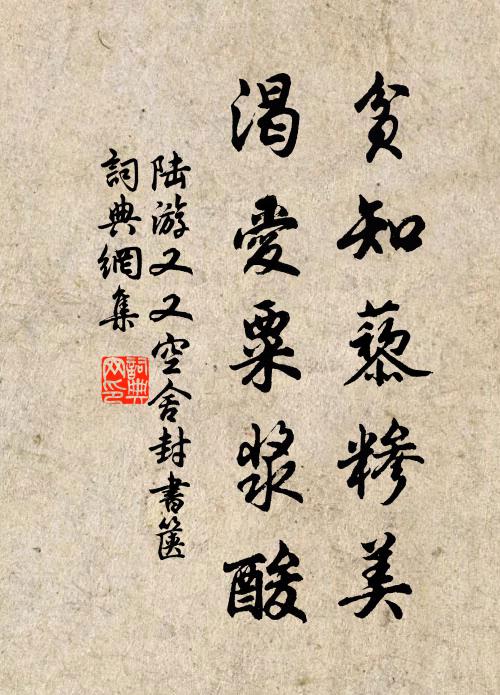 貧知藜糝美
渴愛粟漿酸
陆游又又空舍封書篋
詞典網集
詞典
网印